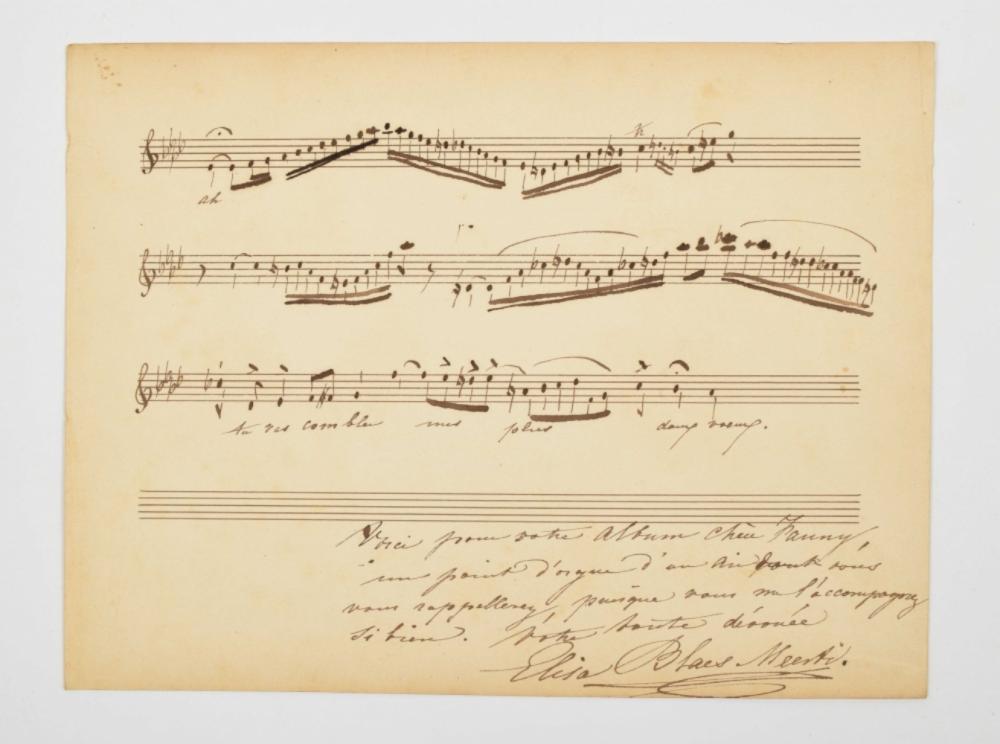 ah
tu vas combler mes plus doux voeux.
Voici pour votre album chère Fanny,
un point d'orgue d'un air dont vous
vous rappellerez, puisque vous me l'accompagnez
si bien. Votre toute dévouée
Elisa Blaes Meerti.